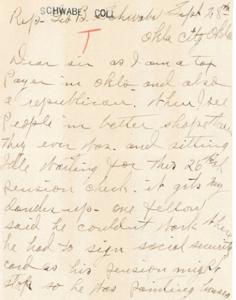 SCHWABE COLL
Rep. Geo B. Schwabe Sept 28th
Okla City Okla
T
Dear sir as I am a tax
Payer in Okla and also
a republican. When I see
People in better shape than
they ever was. and sitting
Idle waiting for this
pension check. it gits my
dander up- one fellow
said he couldn't work where
he had to sign social security
card as his pension might
stop so he was painting houses